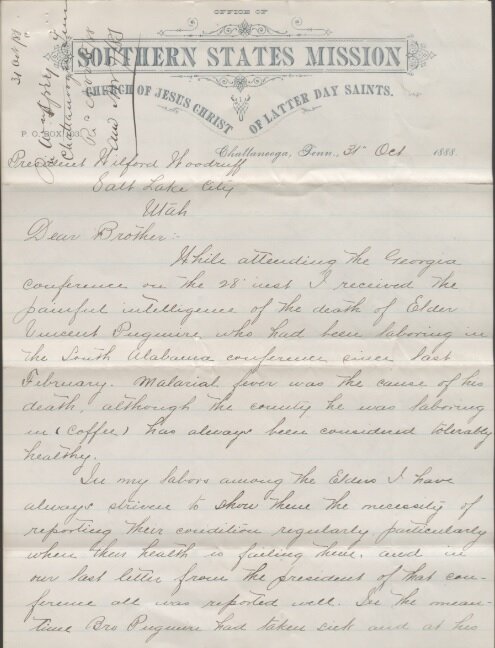 OFFICE OF
SOUTHERN STATES MISSION
CHURCH OF JESUS CHRIST OF LATTER DAY SAINTS.
P. O. BOX 103.
31 Oct /88
Chattanooga
Rec Nov
Chattanooga, Tenn., 31st Oct 1888.
President Wilford Woodruff
Salt Lake City
Utah
Dear Brother:-
While attending the Georgia
conference on the 28" inst I received the
painful intelligence of the death of Elder
Vincent Pugmire who had been laboring in
the South Alabama conference since last
February. Malarial fever was the cause of his
death, although the county he was laboring
in (Coffee) has always been considered tolerably
healthy.
In my labors among the Elders I have
always striven to show them the necessity of
reporting their condition regularly particularly
when their health is failing them, and in
our last letter from the president of that con-
ference all was reported well. In the mean-
time Bro Pugmire had taken sick and at his